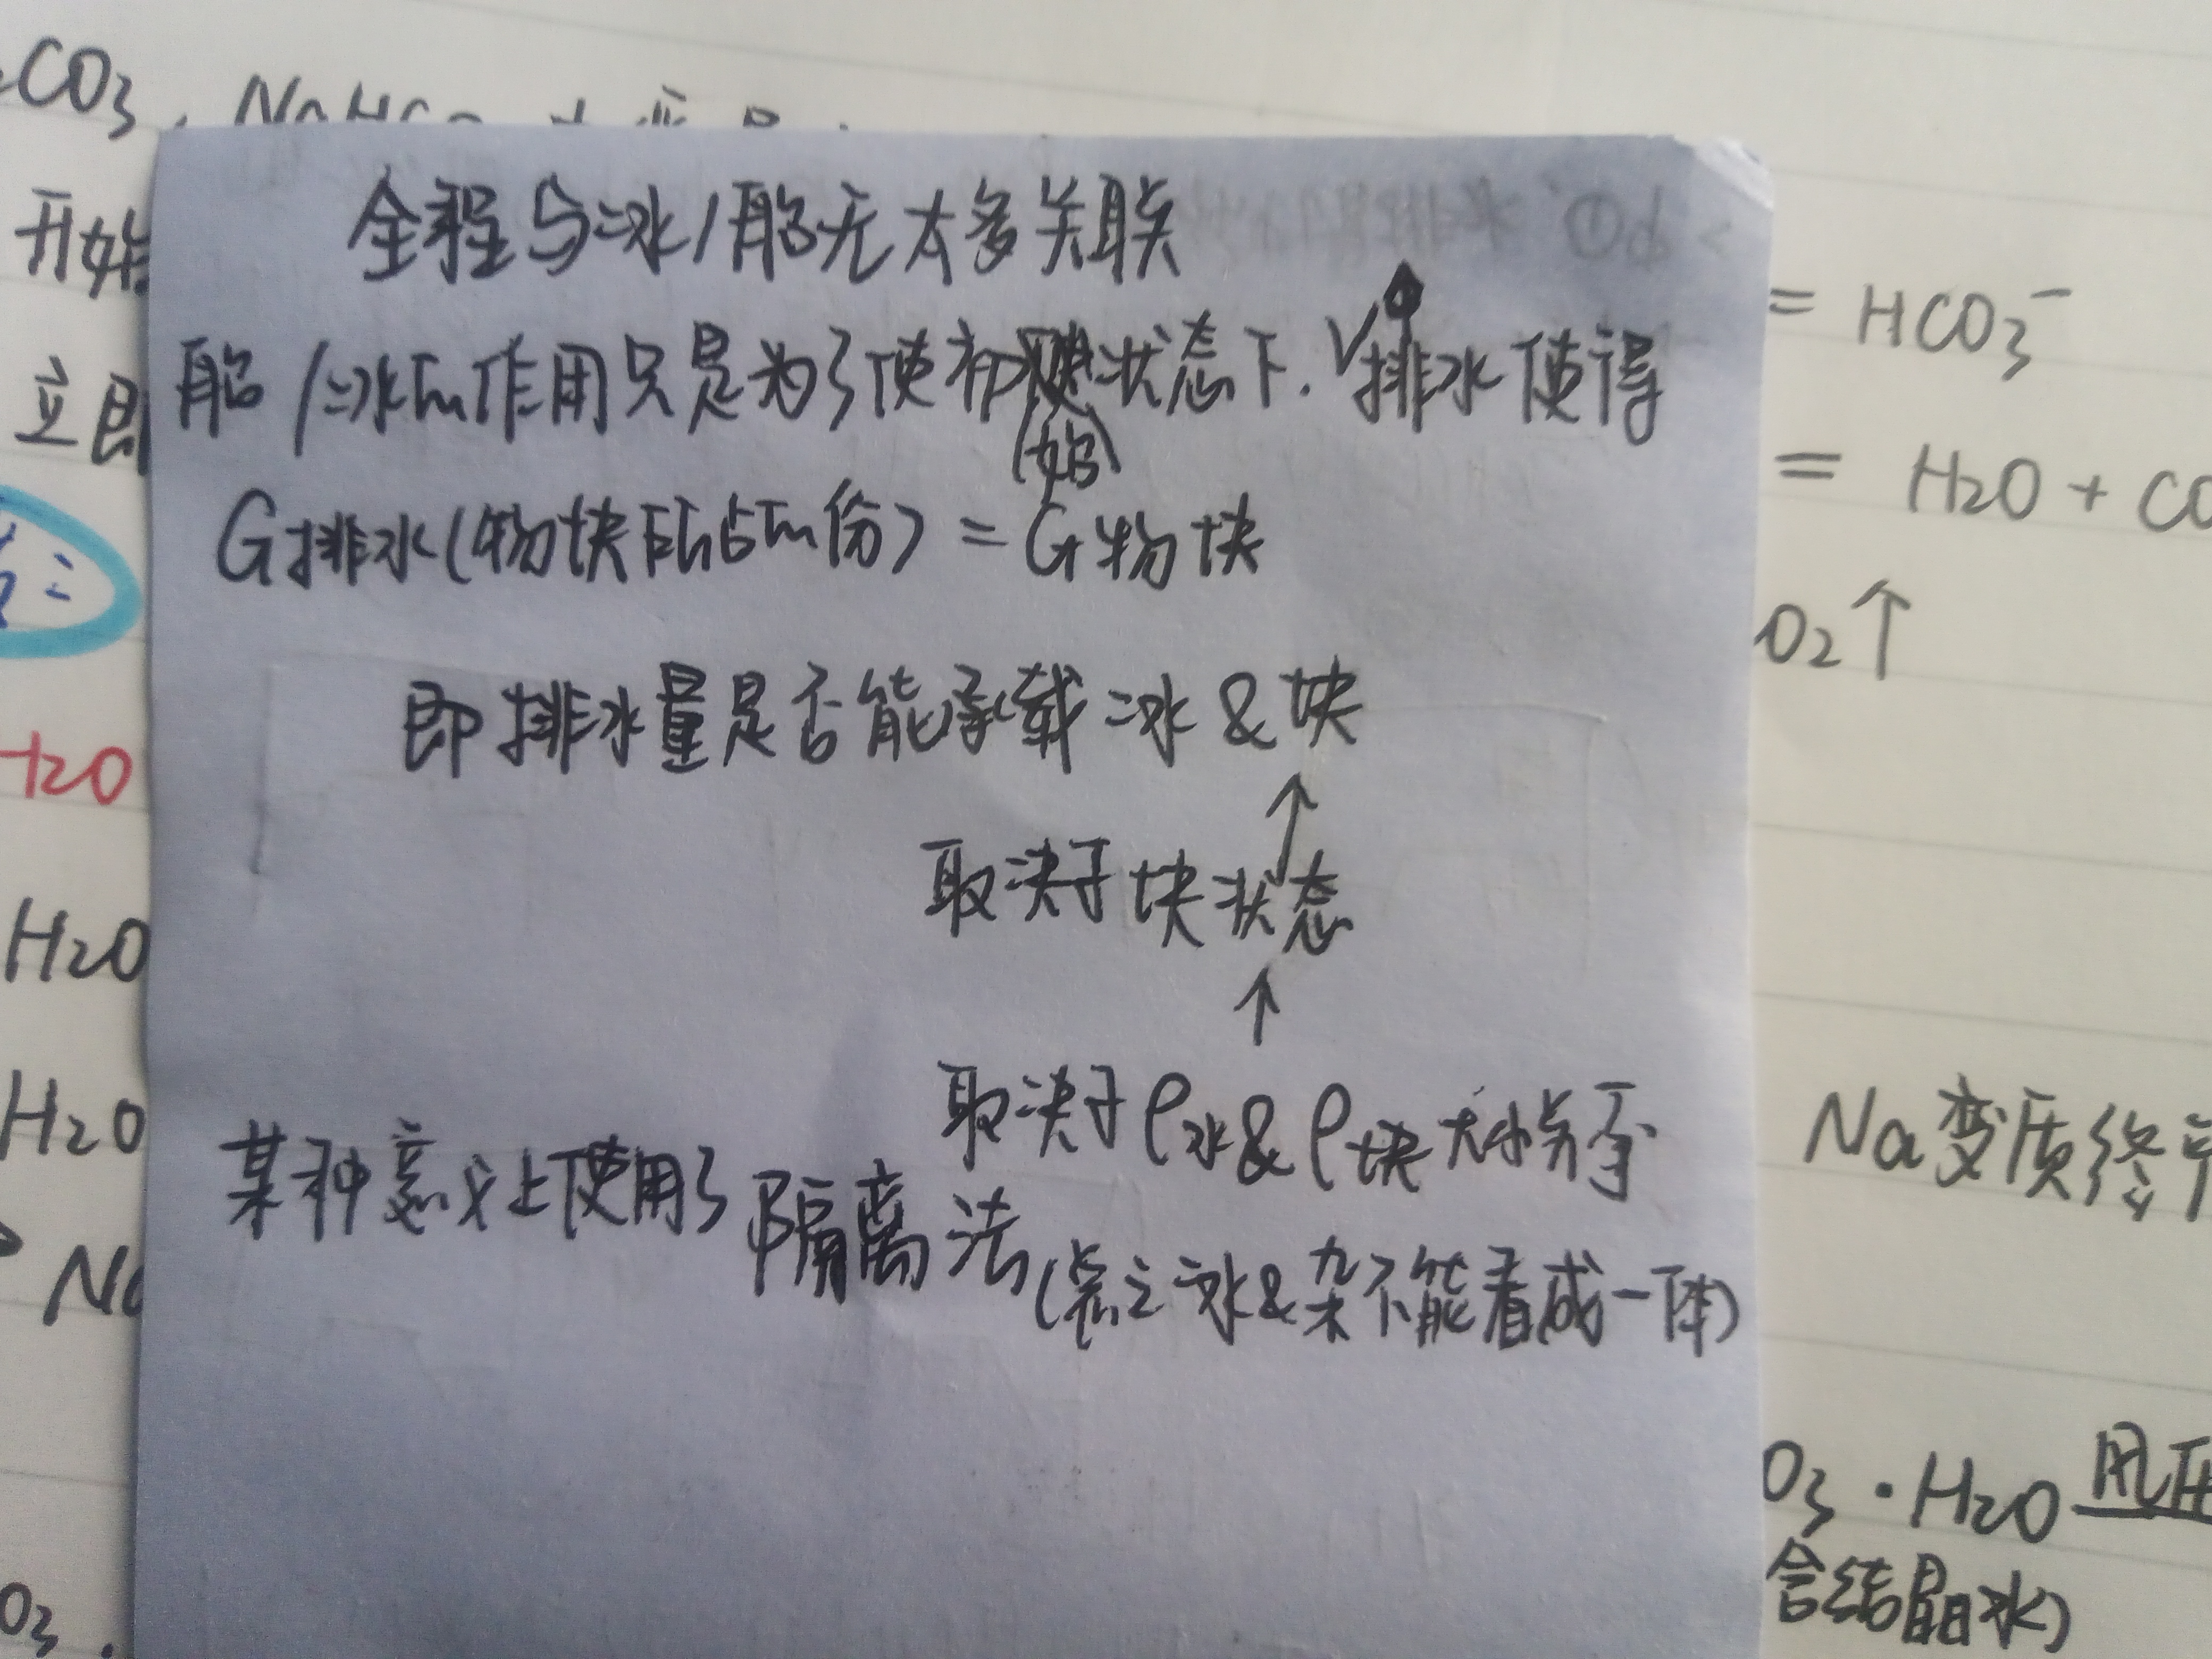 CO₃
全程与冰/船无太多关联
开始
= HCO₃⁻
船/冰的作用只是为了使初状态下.V排水使得
(始)
立即
= H₂O + CO
G排水(物块所占的份) = G物块
O₂↑
即排水量是否能承载冰&块
H₂O
↑
取决于块状态
H₂O
↑
取决于ρ水&ρ块大小关系
H₂O
Na变质终
某种意义上使用了隔离法
(总之冰&杂不能看成一体)
Na
O₃·H₂O 风
含结晶水)
O₃.